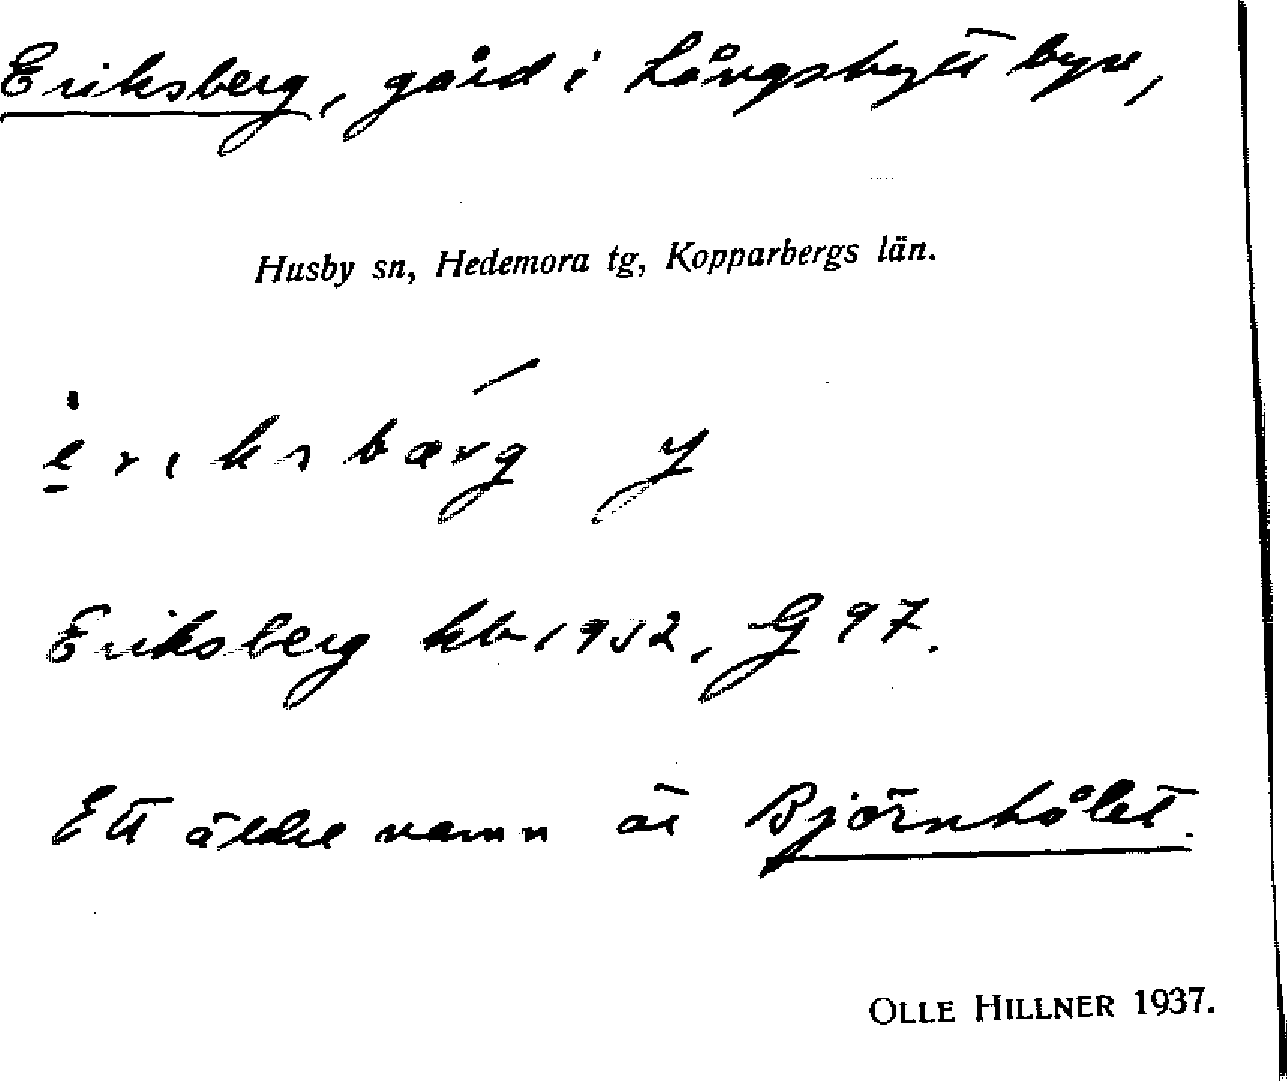 Eriksberg, gård i Långshytte byar,
Husby sn, Hedemora tg, Kopparbergs län.
eriksbærg y
Eriksberg kb 1932, G 97.
Ett äldre namn är Björnhålet.
OLLE HILLNER 1937.